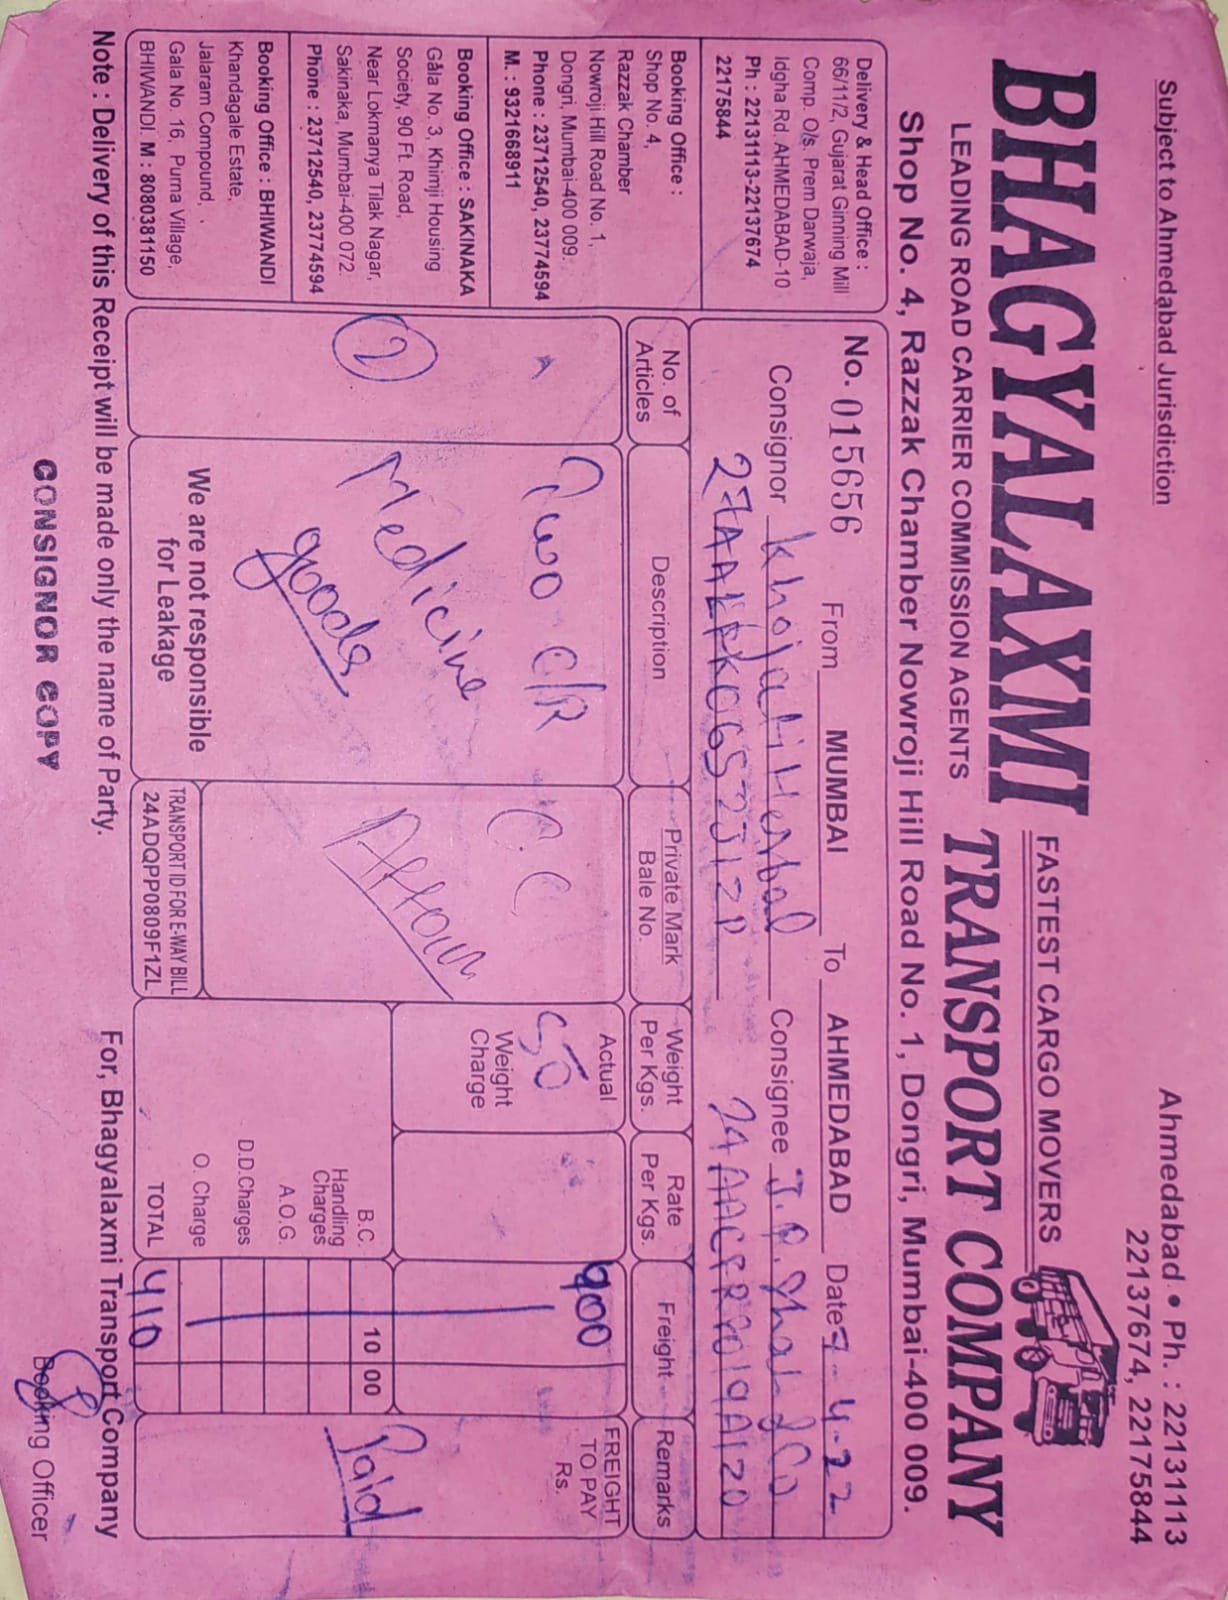 Subject to Ahmedabad Jurisdiction
Ahmedabad • Ph. : 22131113
22137674, 22175844
BHAGYALAXMI
FASTEST CARGO MOVERS
TRANSPORT COMPANY
LEADING ROAD CARRIER COMMISSION AGENTS
Shop No. 4, Razzak Chamber Nowroji Hill Road No. 1, Dongri, Mumbai-400 009.
Delivery & Head Office :
66/11/2, Gujarat Ginning Mill
Comp. O/s. Prem Darwaja,
Idgha Rd. AHMEDABAD-10
Ph : 22131113-22137674
22175844
Booking Office :
Shop No. 4,
Razzak Chamber
Nowroji Hill Road No. 1,
Dongri, Mumbai-400 009.
Phone : 23712540, 23774594
M. : 9321668911
Booking Office : SAKINAKA
Gala No. 3, Khimji Housing
Society, 90 Ft. Road,
Near Lokmanya Tilak Nagar,
Sakinaka, Mumbai-400 072.
Phone : 23712540, 23774594
Booking Office : BHIWANDI
Khandagale Estate,
Jalaram Compound,
Gala No. 16, Purna Village,
BHIWANDI. M : 8080381150
No. 015656 From MUMBAI To AHMEDABAD Date 7-4-22
Consignor Khojati Herbal Consignee J.P. Shah & Co
27AALPK0652J1ZP
No. of Articles
Description
Private Mark
Bale No.
Weight Per Kgs.
Rate Per Kgs.
Freight
Remarks
2
Two C/R
Medicine
goods
We are not responsible
for Leakage
C.C
TRANSPORT ID FOR E-WAY BILL
24ADQPP0809F1ZL
Actual
50
Weight
Charge
400
B.C. 10 00
Handling
Charges
A.O.G.
D.D.Charges
O. Charge
TOTAL 410
FREIGHT
TO PAY
Rs.
Paid
Note : Delivery of this Receipt will be made only the name of Party.
For, Bhagyalaxmi Transport Company
CONSIGNOR COPY
Booking Officer